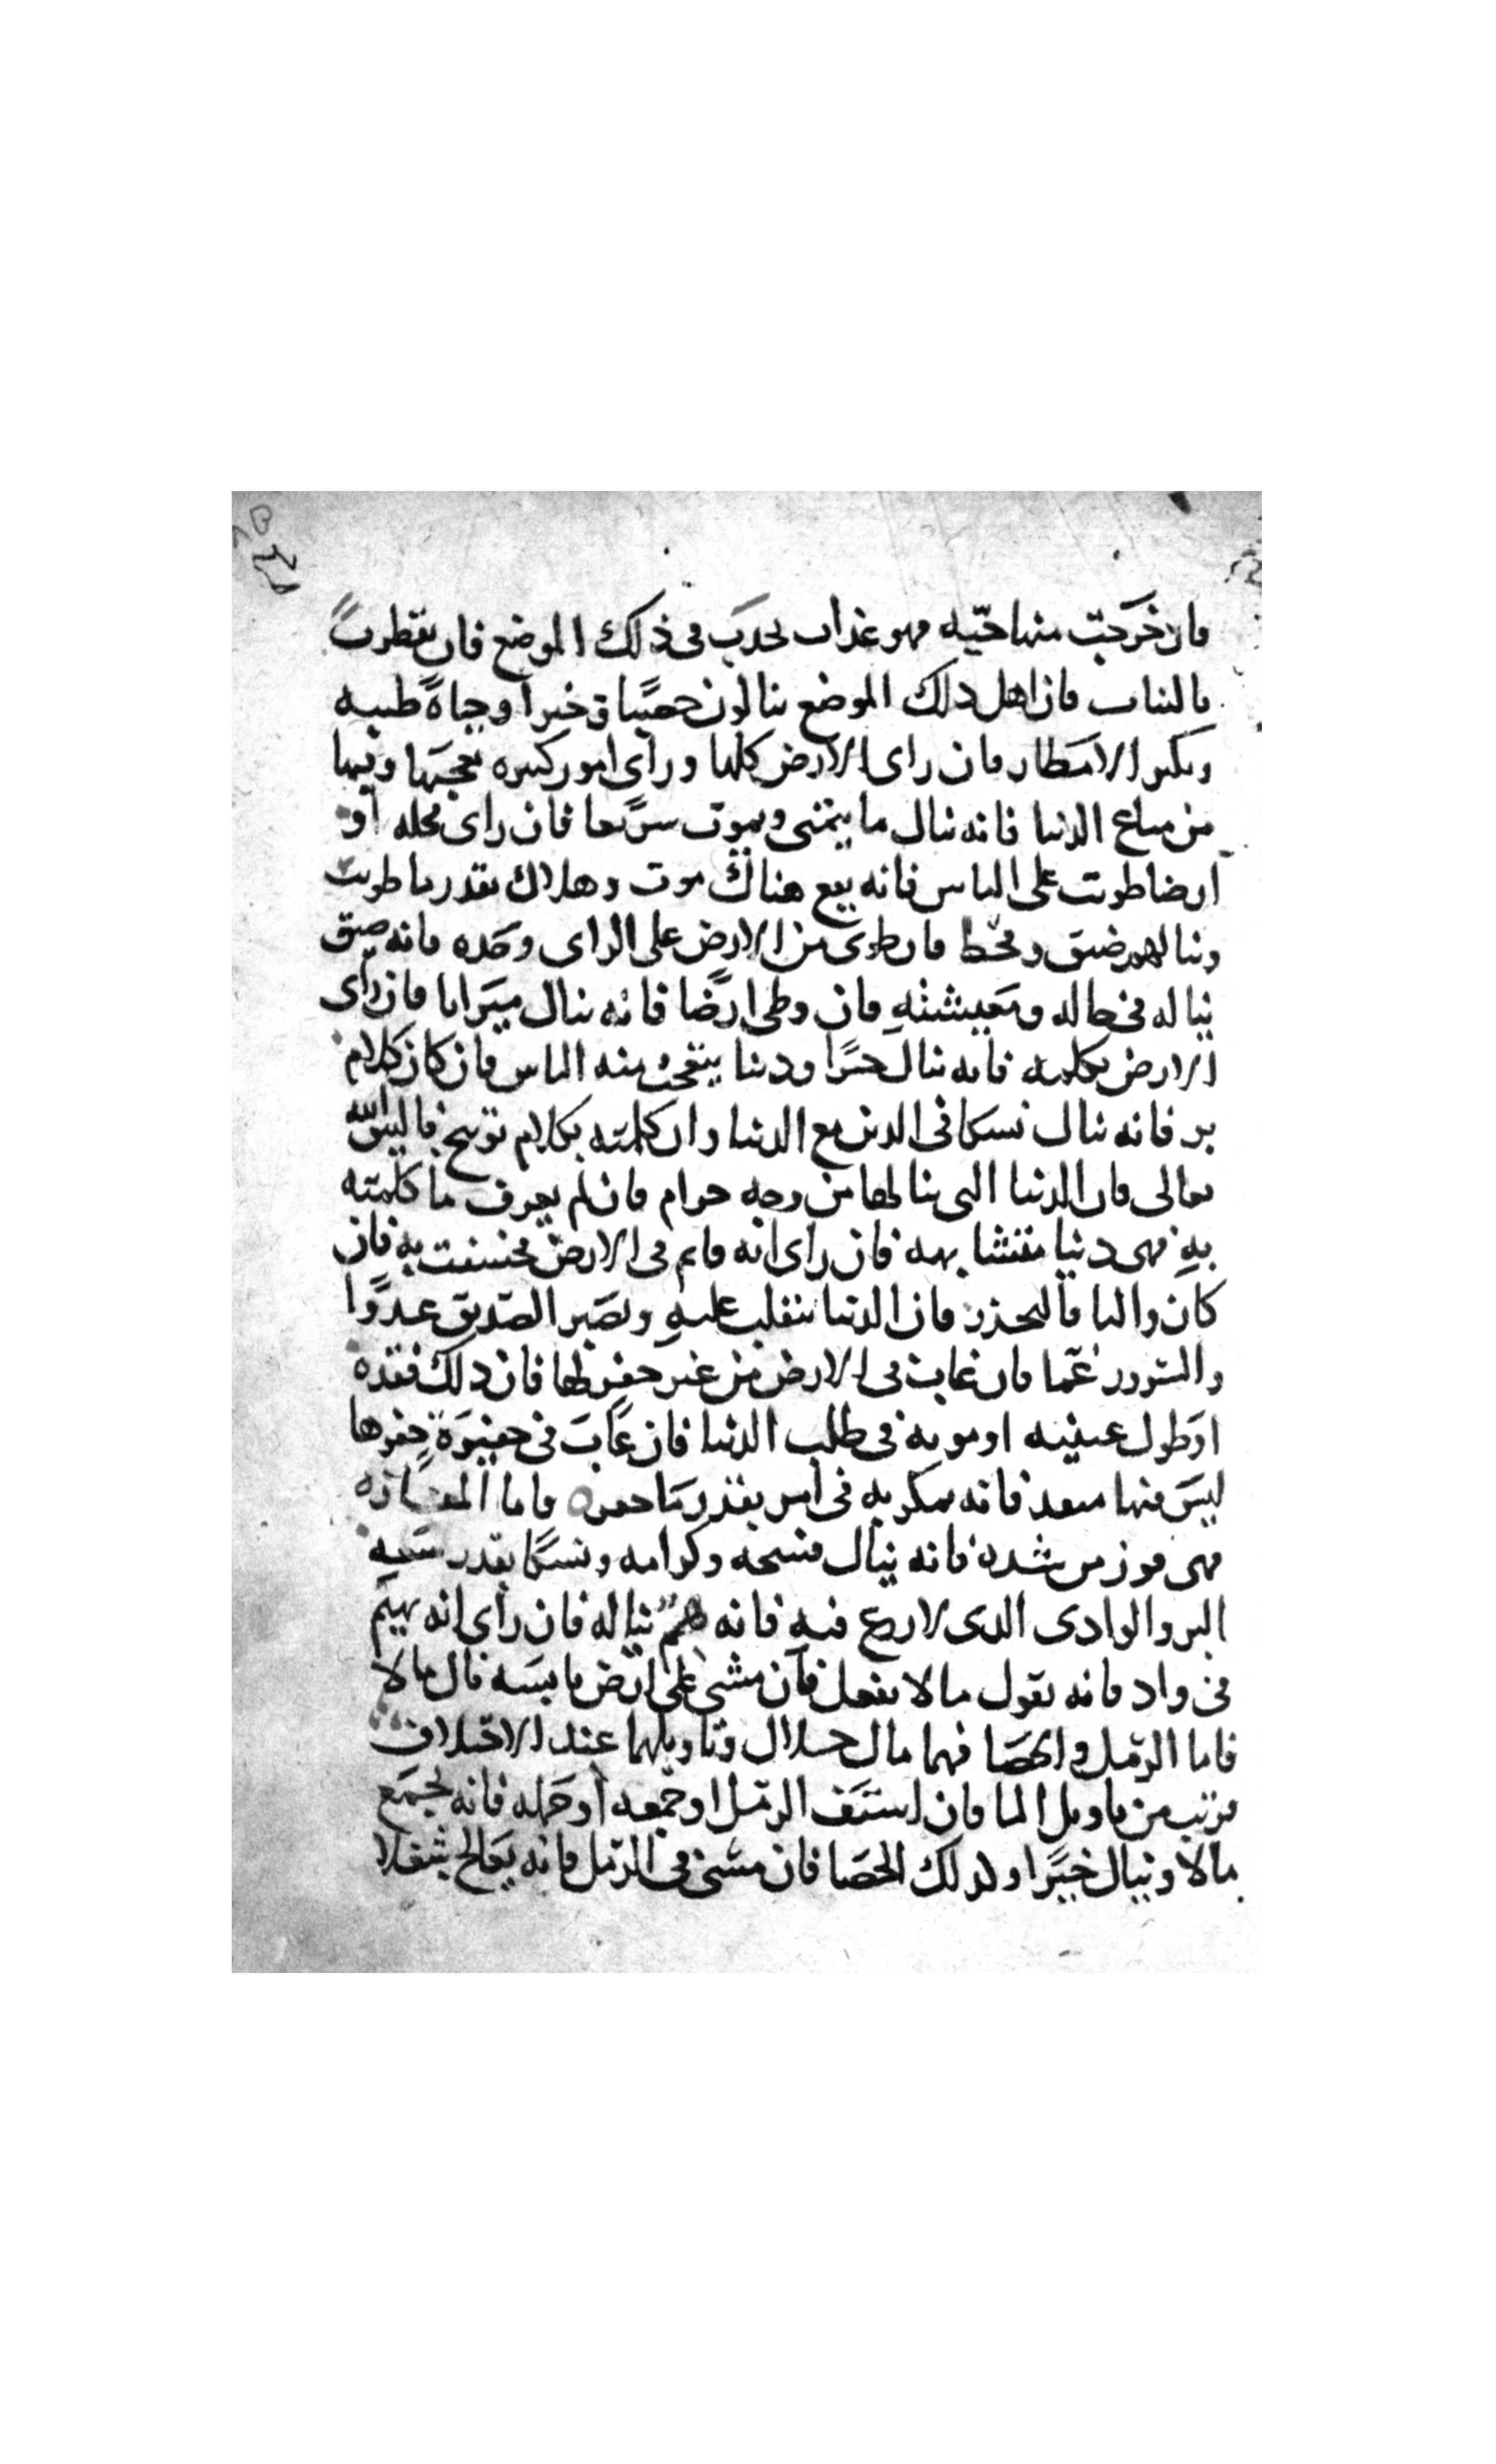 فان خرجت منها حيّه فهو عذاب يحدث فى ذلك الموضع فان تفطرت
بالنبات فان اهل ذلك الموضع ينالون خصبًا وخيرا وحياةً طيبه
وتكثر الامطار فان راى الارض كلها وراى امور كثيره تعجبها وفيها
من متاع الدنيا فانه ينال ما يتمنى ويموت سريعا فان راى محله او
ارضا طويت على الناس فانه يقع هناك موت وهلاك بقدر ما طويت
وينالهم ضيق وقحط فان طوى من الارض على الراى وحده فانه ضيق
يناله فى حاله ومعيشته فان وطى ارضًا فانه ينال ميراثا فان راى
الارض تكلمه فانه ينال خيرًا ودنيا يتعجب منه الناس فان كان كلام
بر فانه ينال نسكا فى الدين مع الدنيا وان كلمته بكلام توبيخ فاليتق الله
تعالى فان الدنيا التى ينالها من وجه حرام فان لم يعرف ما كلمته
به فهى دنيا متشابهه فان راى انه قايم فى الارض فخسفت به فان
كان واليا فاليحذر فان الدنيا تنقلب عليه وتصير الصديق عدوًا
والسرور غمّا فان غاب فى الارض من غير حفر لها فان ذلك فقده
او طول غيبه او موته فى طلب الدنيا فان غاب فى حفيرة حفرها
ليس فيها منفد فانه يمكر به فى امر بقدر ما حفر ه واما المفازه
فهى فوز من شده فانه ينال فسحه وكرامه ونسكًا بقدر سعه
البر والوادى الدى لا زرع فيه فانه همٌ يناله فان راى انه يهيم
فى واد فانه يقول ما لا يفعل فان مشى على ارض يابسه نال مالا
فاما الرمل والحصا فهما مال حلال وتاويلهما عند الاختلاف
قريب من تاويل الما فان استف الرمل او جمعه او حمله فانه يجمع
مالا وينال خيرًا وكدلك الحصا فان مشى فى الرمل فانه يعالج شغلا